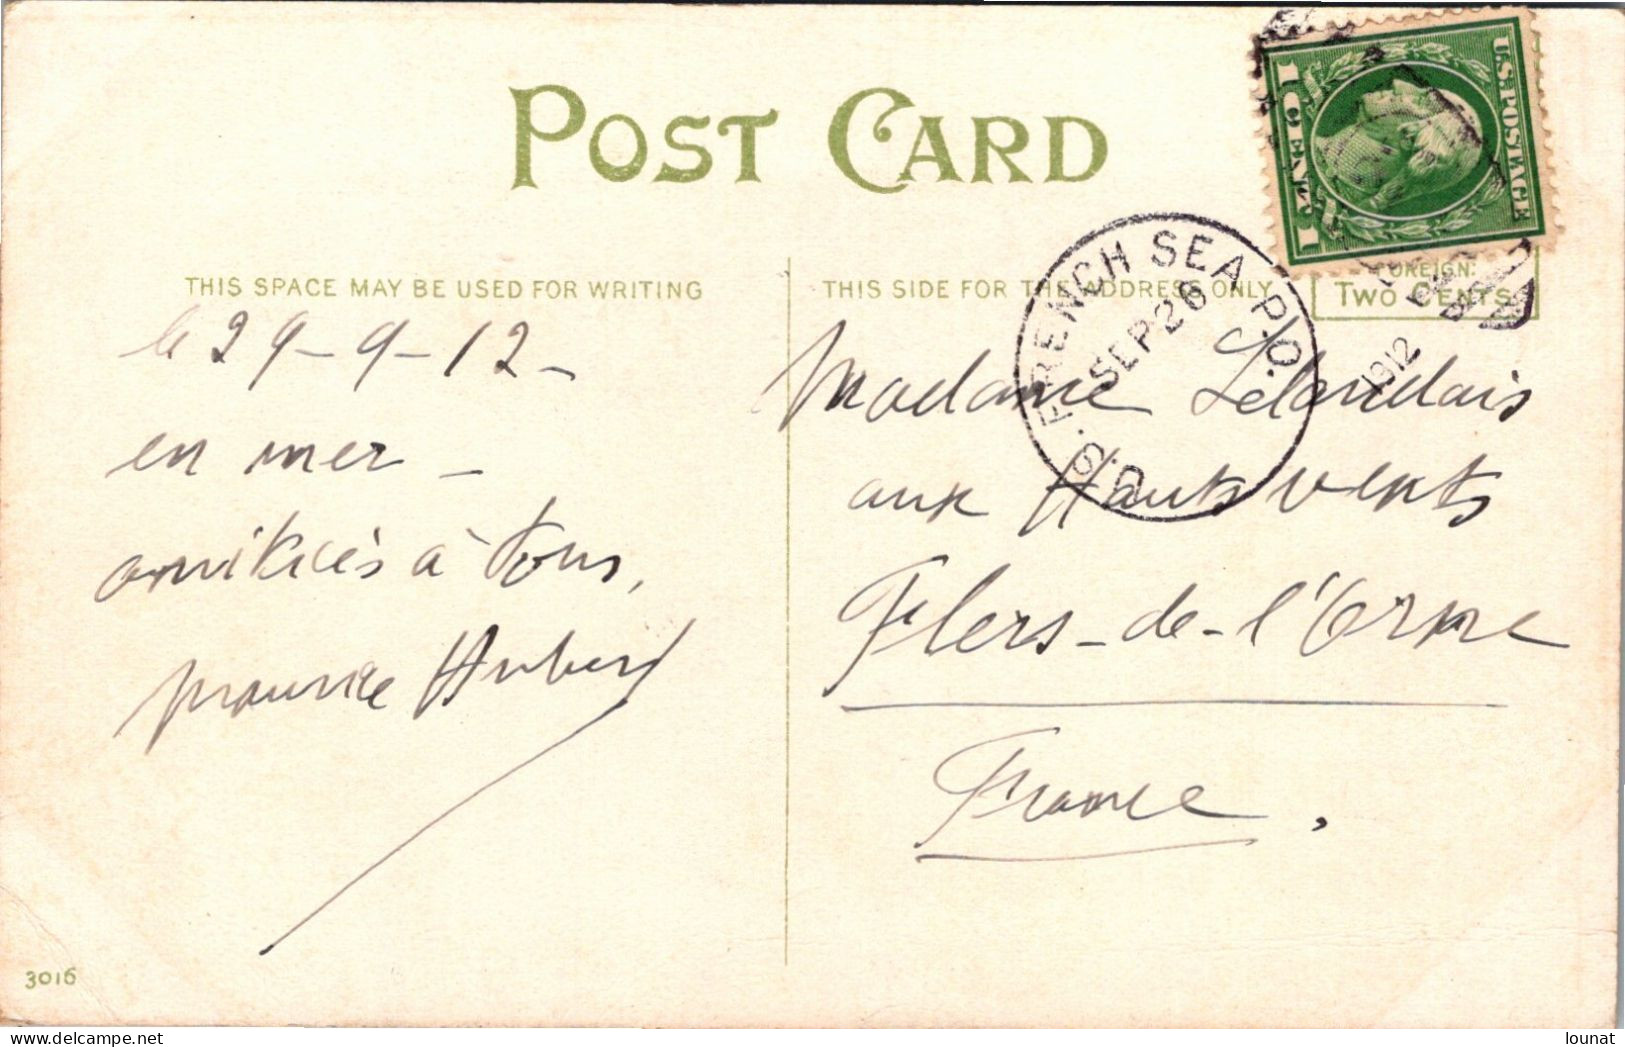 POST CARD
U.S. POSTAGE
1 CENT 1
THIS SPACE MAY BE USED FOR WRITING
THIS SIDE FOR THE ADDRESS ONLY
FOREIGN:
TWO CENTS
U.S. FRENCH SEA P.O.
SEP 26
1912
le 29-9-12-
en mer -
amitiés à tous,
Maurice Hubert
Madame Lelandais
aux Hauts vents
Flers-de-l'Orne
France.
3016
lounat